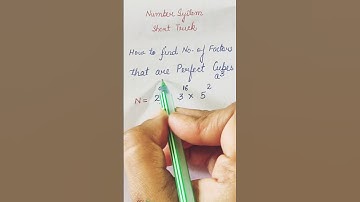 Number System
Short Track
How to find No. of Factors
That are Perfect Cubes
a³
N = 2 3¹⁶ × 5²